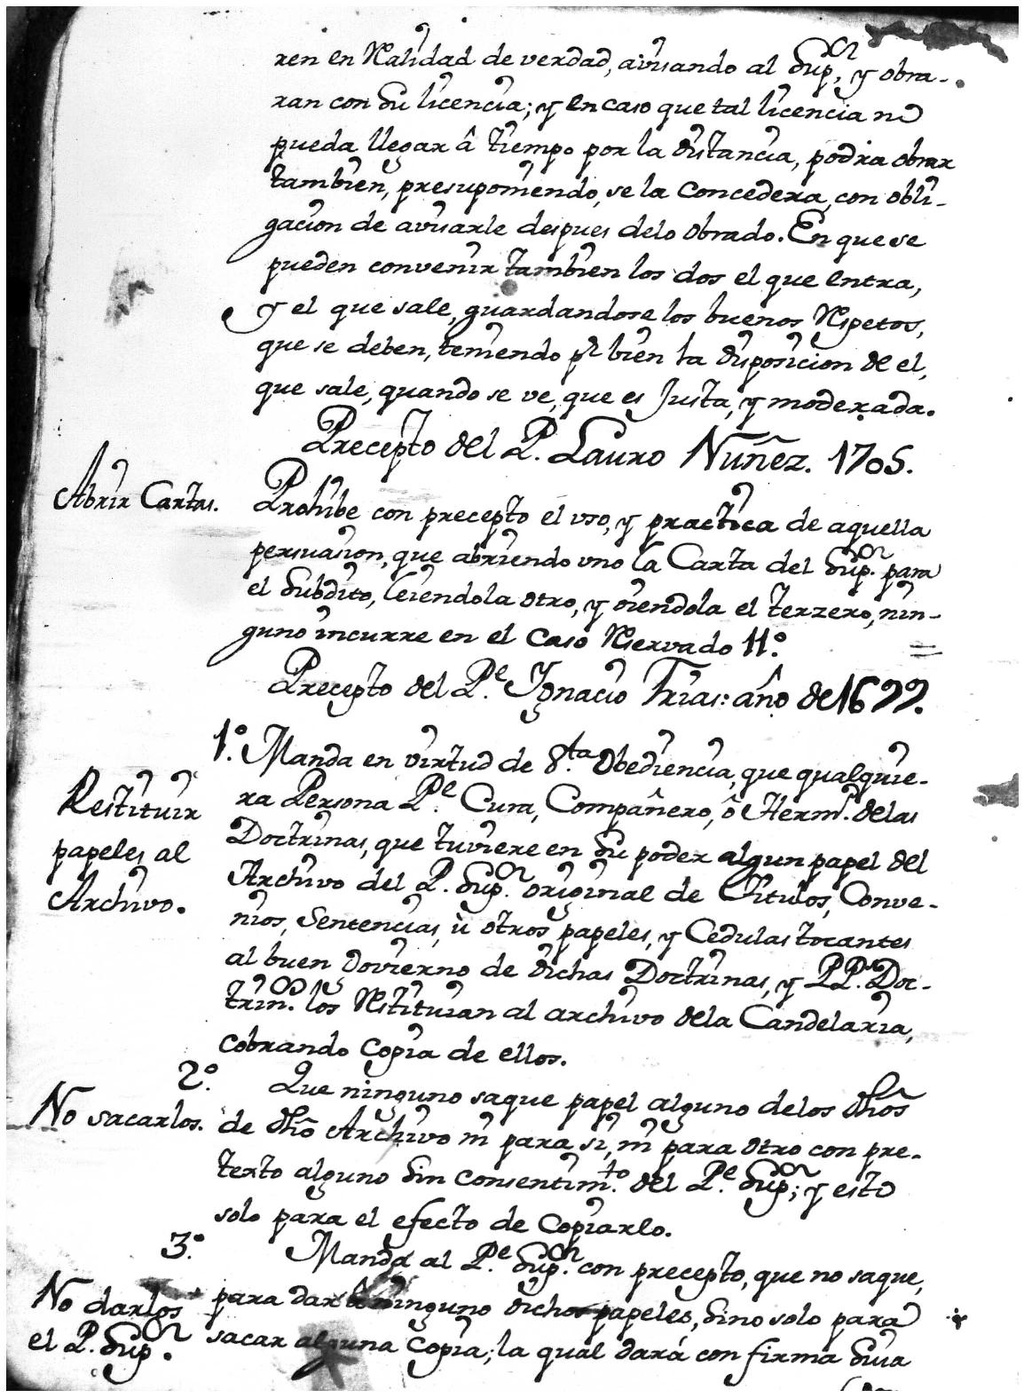 ren en Realidad de verdad, avisando al Sup.or y obra-
ran con su licencia; y en caso que tal licencia no
pueda llegar â tiempo por la distancia, podra obrar
tambien, presuponiendo, se la concedera, con obli-
gacion de avisarle despues delo obrado. En que se
pueden convenir tambien los dos el que entra,
y el que sale, guardandose los buenos Respetos,
que se deben, teniendo pr bien la disposicion de el,
que sale, quando se ve, que es Justa, y moderada.
Precepto del P. Lauro Nuñez. 1705.
Abrir Cartas.
Prohibe con precepto el uso, y practica de aquella
persuasion, que abriendo uno la Carta del Sup.or para
el subdito, leiendola otro, y oiendola el terzero, nin-
guno incurre en el caso Reservado 11.º
Precepto del P.e Ygnacio Frias: año de 1699.
Restituir
papeles al
Archivo.
1.º Manda en virtud de S.ta Obediencia, que qualquie-
ra Persona P.e Cura, Compañero, ô Herm.o delas
Doctrinas, que tuviere en su poder algun papel del
Archivo del P. Sup.or original de Titulos, Conve-
nios, Sentencias, ù otros papeles, y Cedulas tocantes
al buen Govierno de dichas Doctrinas, y PP.s Doc-
trin.os los Restituian al archivo dela Candelaria,
cobrando copia de ellos.
No sacarlos.
2.º Que ninguno saque papel alguno delos dhôs
de dhô Archivo ni para si, ni para otro con pre-
texto alguno sin consentim.to del P.e Sup.or; y esto
solo para el efecto de Copiarlo.
No darlos
el P. Sup.or
3.º Manda al P.e Sup.or con precepto, que no saque,
para dar â ninguno dichos papeles, sino solo para
sacar alguna Copia; la qual dará con firma suia